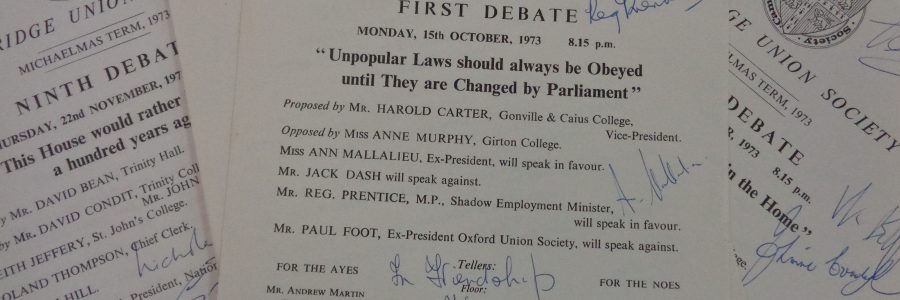 RIDGE UNION
MICHAELMAS TERM, 1973
NINTH DEBAT
HURSDAY, 22nd NOVEMBER, 197
This House would rather
a hundred years ag
by Mr. DAVID BEAN, Trinity Hall.
by Mr. DAVID CONDIT, Trinity Coll
Mr. JOHN
EITH JEFFERY, St. John's College.
OLAND THOMPSON, Chief Clerk,
HILL
President, Nation
FIRST DEBATE
MONDAY, 15th OCTOBER, 1973 8.15 p.m.
“Unpopular Laws should always be Obeyed
until They are Changed by Parliament”
Proposed by Mr. HAROLD CARTER, Gonville & Caius College,
Vice-President.
Opposed by Miss ANNE MURPHY, Girton College.
Miss ANN MALLALIEU, Ex-President, will speak in favour.
Mr. JACK DASH will speak against.
Mr. REG. PRENTICE, M.P., Shadow Employment Minister,
will speak in favour.
Mr. PAUL FOOT, Ex-President Oxford Union Society, will speak against.
Tellers:
FOR THE AYES In Friendship FOR THE NOES
Floor:
Mr. ANDREW MARTIN
Society
GE UNION SOCIETY
MAS TERM, 1973
DEBATE
R, 1973 8.15 p.m.
in the Home”